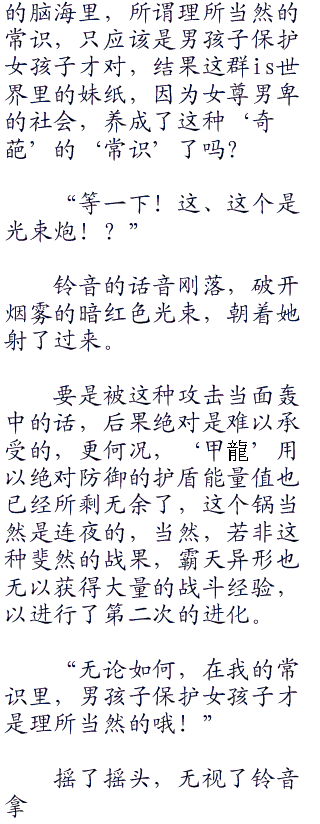 的脑海里，所谓理所当然的
常识，只应该是男孩子保护
女孩子才对，结果这群is世
界里的妹纸，因为女尊男卑
的社会，养成了这种‘奇
葩’的‘常识’了吗？
“等一下！这、这个是
光束炮！？”
铃音的话音刚落，破开
烟雾的暗红色光束，朝着她
射了过来。
要是被这种攻击当面轰
中的话，后果绝对是难以承
受的，更何况，‘甲龍’用
以绝对防御的护盾能量值也
已经所剩无余了，这个锅当
然是连夜的，当然，若非这
种斐然的战果，霸天异形也
无以获得大量的战斗经验，
以进行了第二次的进化。
“无论如何，在我的常
识里，男孩子保护女孩子才
是理所当然的哦！”
摇了摇头，无视了铃音
拿